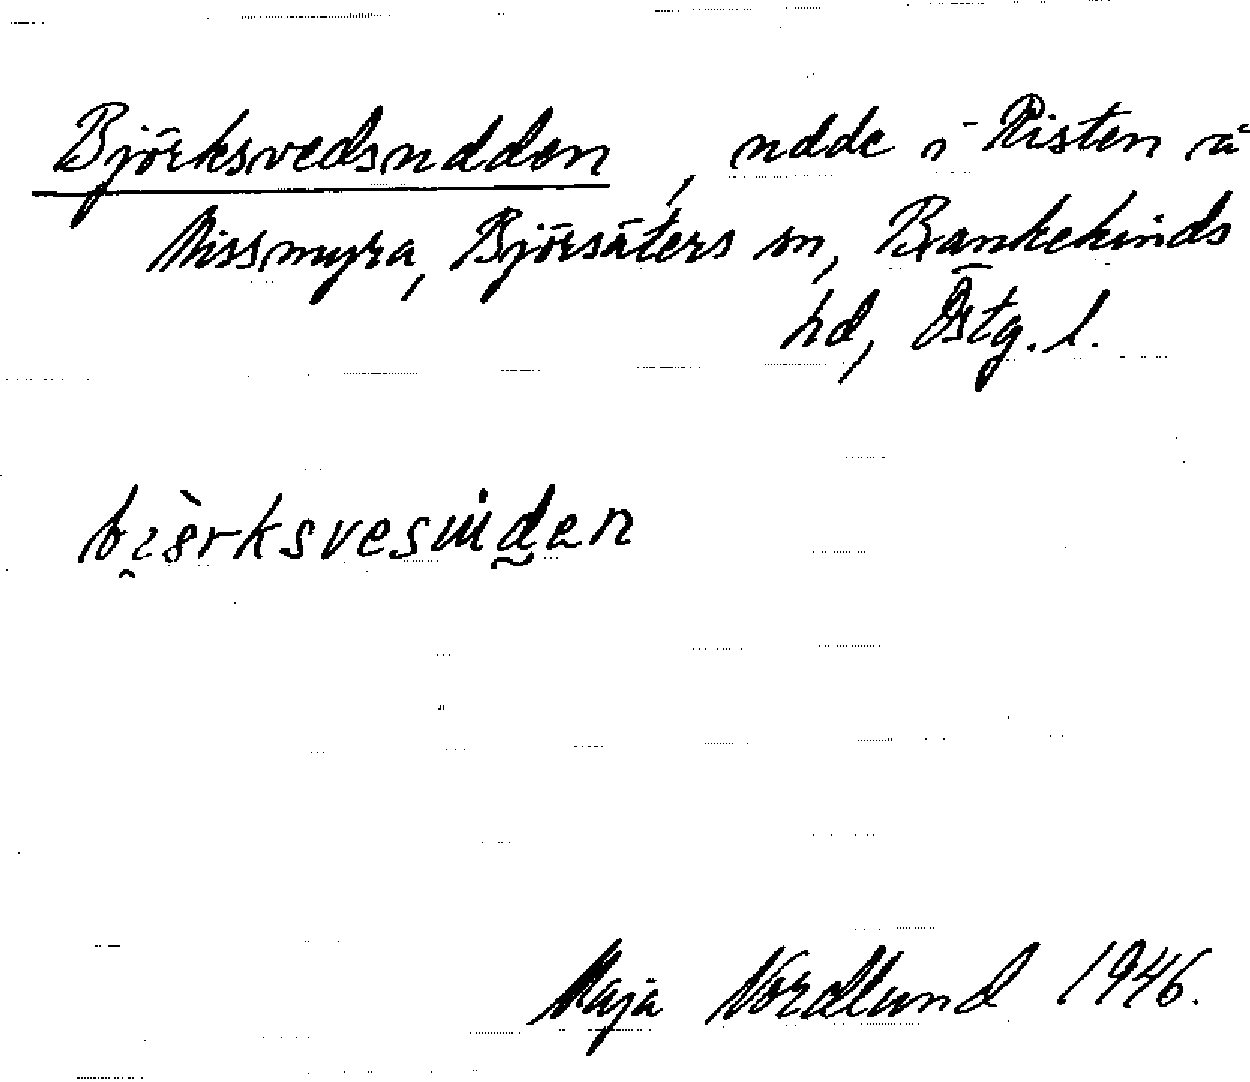 Björksvedsudden, udde i Risten å
Missmyra, Björsäters sn, Bankekinds
hd, Östg. l.
Maja Nordlund 1946.